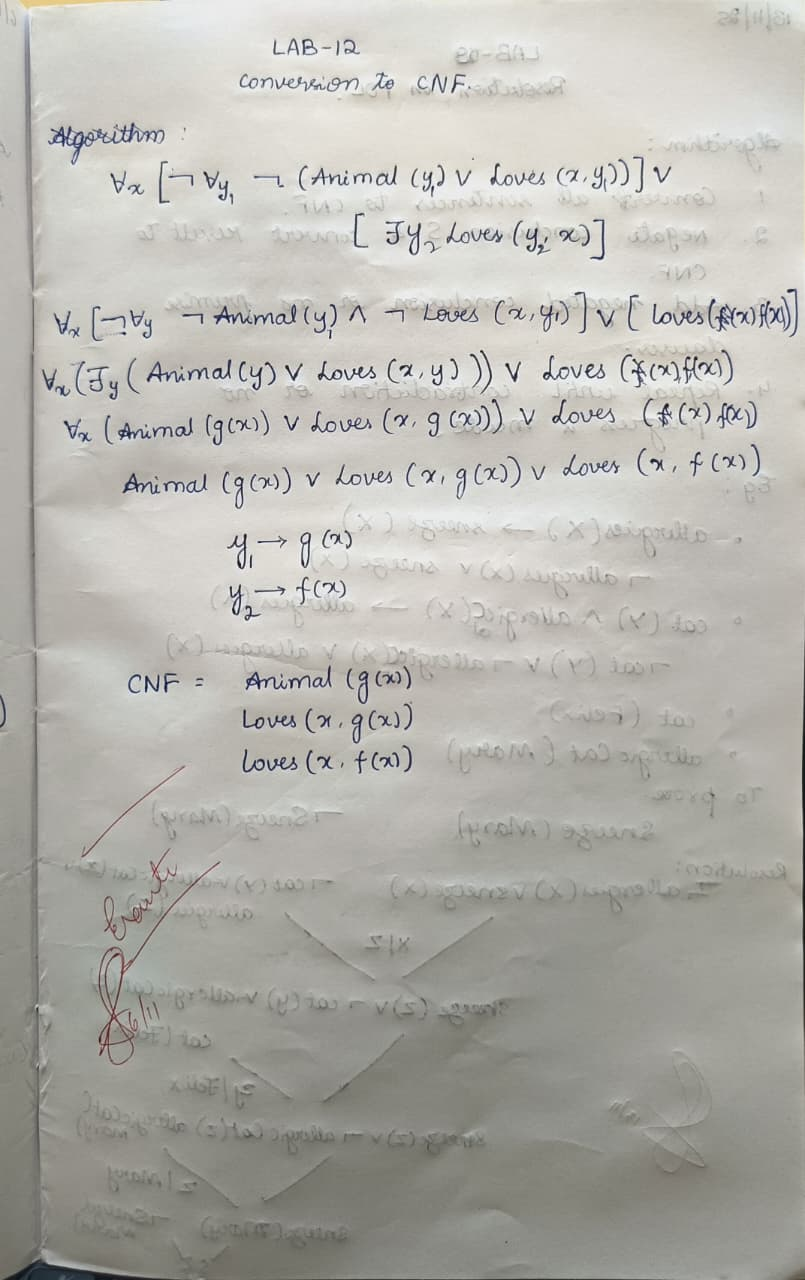 LAB-12
Conversion to CNF.
Algorithm :
∀x [¬ ∀y₁ ¬ (Animal (y₁) ∨ Loves (x, y₁))] ∨
[ ∃y₂ Loves (y₂, x)]
∀x [¬∀y ¬ Animal (y₁) ∧ ¬ Loves (x, y₁)] ∨ [ Loves ((x) f(x))]
∀x (∃y (Animal (y) ∨ Loves (x, y))) ∨ Loves ((x), f(x))
∀x (Animal (g(x)) ∨ Loves (x, g(x))) ∨ Loves ((x) f(x))
Animal (g(x)) ∨ Loves (x, g(x)) ∨ Loves (x, f(x))
y₁ → g(x)
y₂ → f(x)
CNF = Animal (g(x))
Loves (x, g(x))
Loves (x, f(x))